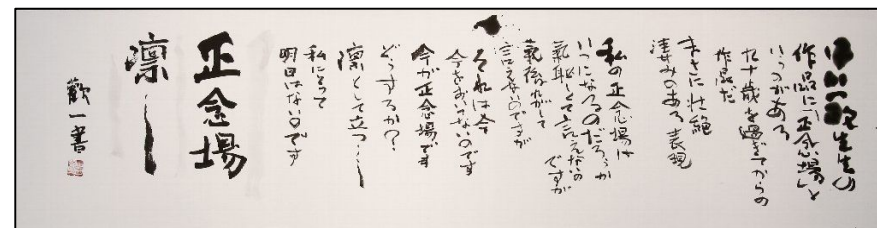 先生の
作品に「正念場」と
いうのがある
九十歳を過ぎてからの
作品だ
まさに壮絶
凄みのある表現
私の正念場は
いつになるのだろうか
氣恥しくて言えないの
ですが
氣後れがして
言えないのですが
それは今
今をおいてないのです
今が正念場です
どうするか?
凛として立つ――
私にとって
明日はないのです
正念場
凛――
歡一書